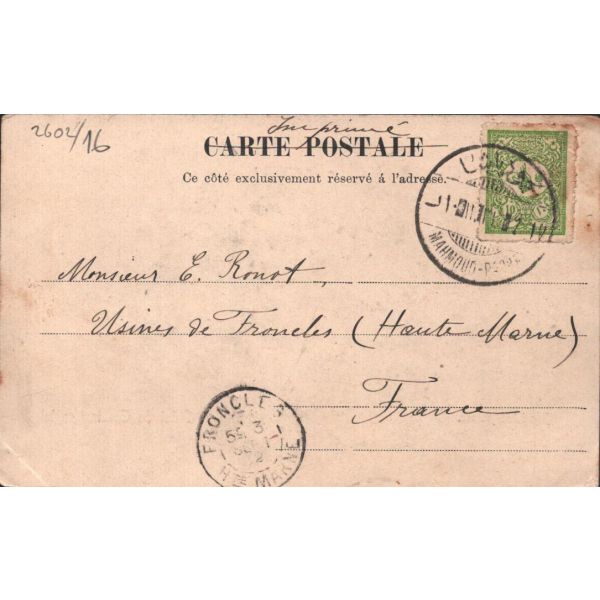 2602/16
Imprimé
CARTE POSTALE
Ce côté exclusivement réservé à l'adresse.
MAHMOUD-PACHA
Monsieur E. Ronot,
Usines de Froncles (Haute Marne)
France
FRONCLES
Hte MARNE